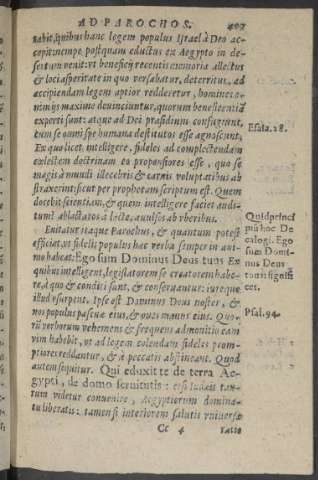 AD PAROCHOS. 407
rabit, quibus hanc legem populus Israel à Deo ac-
cepit: nempe postquam eductus ex Aegypto in de-
sertum venit: vt beneficij recentis memoria allectus
& loci asperitate in quo versabatur, deterritus, ad
accipiendam legem aptior redderetur, homines e-
nim ijs maxime deuinciuntur, quorum beneficentiã
experti sunt: atque ad Dei præsidium confugiunt,
cum se omni spe humana destitutos esse agnoscunt.
Ex quo licet, intelligere, fideles ad complectendam
cælestem doctrinam eo propensiores esse, quo se
magis à mundi illecebris & carnis voluptatibus ab
straxerint: sicut per prophetam scriptum est. Quem
docebit scientiam, & quem intelligere faciet audi-
tum? ablactatos à lacte, auulsos ab vberibus.
Enitatur itaque Parochus, & quantum potest
efficiat, vt fidelis populus hæc verba semper in ani-
mo habeat: Ego sum Dominus Deus tuus Ex
quibus intelligent, legislatorem se creatorem habe-
re, à quo & conditi sunt, & conseruantur: iure que
illud vsurpent. Ipse est Dominus Deus noster, &
nos populus pascuæ eius, & oues manus eius. Quo-
rũ verborum vehemens & frequens admonitio eam
vim habebit, vt ad legem colendam fideles prom-
ptiores reddantur, & à peccatis abstineant. Quod
autem sequitur. Qui eduxi te de terra Ae-
gypti, de domo seruitutis: etsi Iudæis tan-
tum videtur conuenire, Aegyptiorum domina-
tu liberatis: tamen si interiorem salutis vniuersæ
Cc 4 ratio
Esaia. 28.
Quid princi
piũ hoc De
calogi. Ego
sum Domi-
nus Deus
tuus signifi
cet.
Psal. 94.